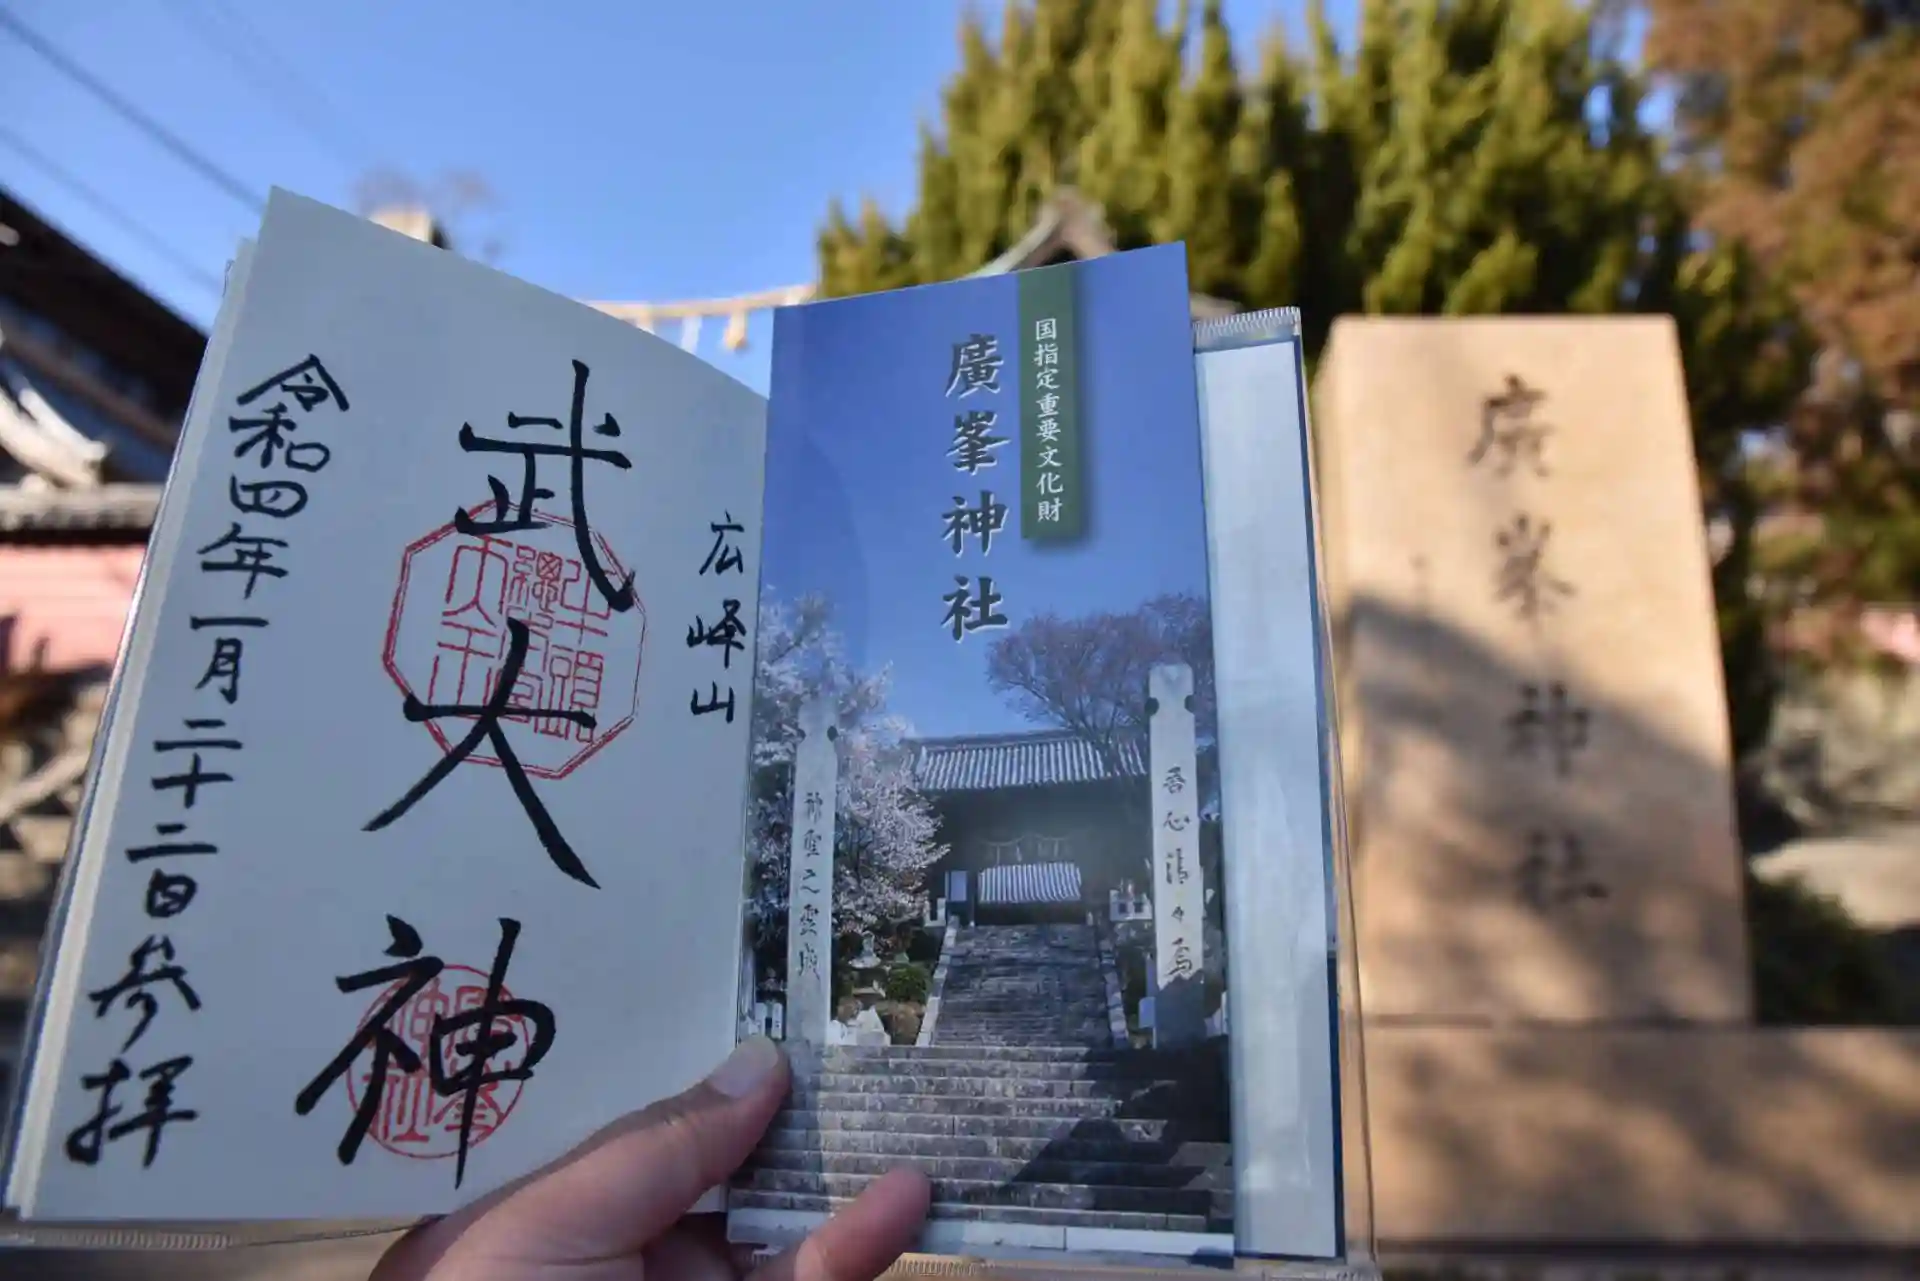 広峰山
武大神
令和四年一月二十二日参拝
国指定重要文化財
廣峯神社
吾心清々焉
神聖之霊域
廣峯神社